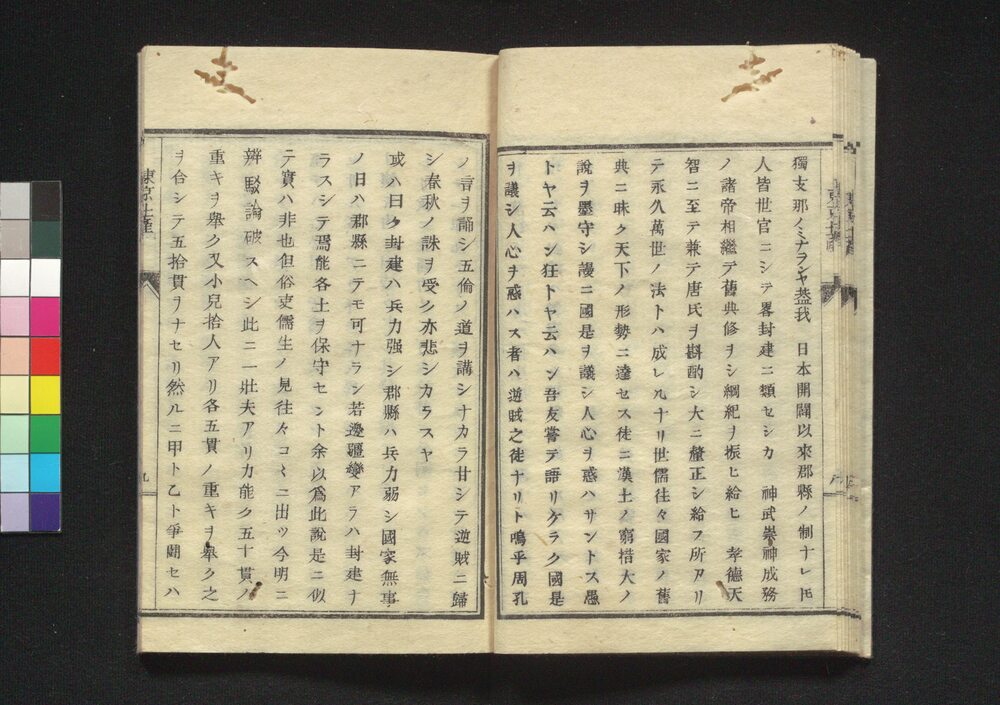 獨支那ノミナランヤ葢我　日本開闢以來郡縣ノ制ナレ𪜈
人皆世官ニシテ畧封建ニ類セシカ　神武崇神成務
ノ諸帝相繼テ舊典修ヲシ綱紀ヲ振ヒ給ヒ　孝德天
智ニ至テ兼テ唐氏ヲ斟酌シ大ニ釐正シ給フ所アリ
テ永久萬世ノ法トハ成レルナリ世儒往々國家ノ舊
典ニ昧ク天下ノ形勢ニ達セス徒ニ漢土ノ窮措大ノ
說ヲ墨守シ謾ニ國是ヲ議シ人心ヲ惑ハサントス愚
トヤ云ハン狂トヤ云ハン吾友嘗テ語リケラク國是
ヲ議シ人心ヲ惑ハス者ハ逆賊之徒ナリト嗚乎周孔
ノ言ヲ誦シ五倫ノ道ヲ講シナカラ甘シテ逆賊ニ歸
シ春秋ノ誅ヲ受ク亦悲シカラスヤ
或ハ曰ク封建ハ兵力强シ郡縣ハ兵力弱シ國家無事
ノ日ハ郡縣ニテモ可ナラン若邊疆變アラハ封建ナ
ラスシテ焉能各土ヲ保守セント余以爲此說是ニ似
テ實ハ非也但俗吏儒生ノ見往々コヽニ出ツ今明ニ
辨駁論破スヘシ此ニ一壯夫アリ力能ク五十貫ノ
重キヲ舉ク又小兒拾人アリ各五貫ノ重キヲ舉ク之
ヲ合シテ五拾貫ヲナセリ然ルニ甲ト乙ト爭鬪セハ
九